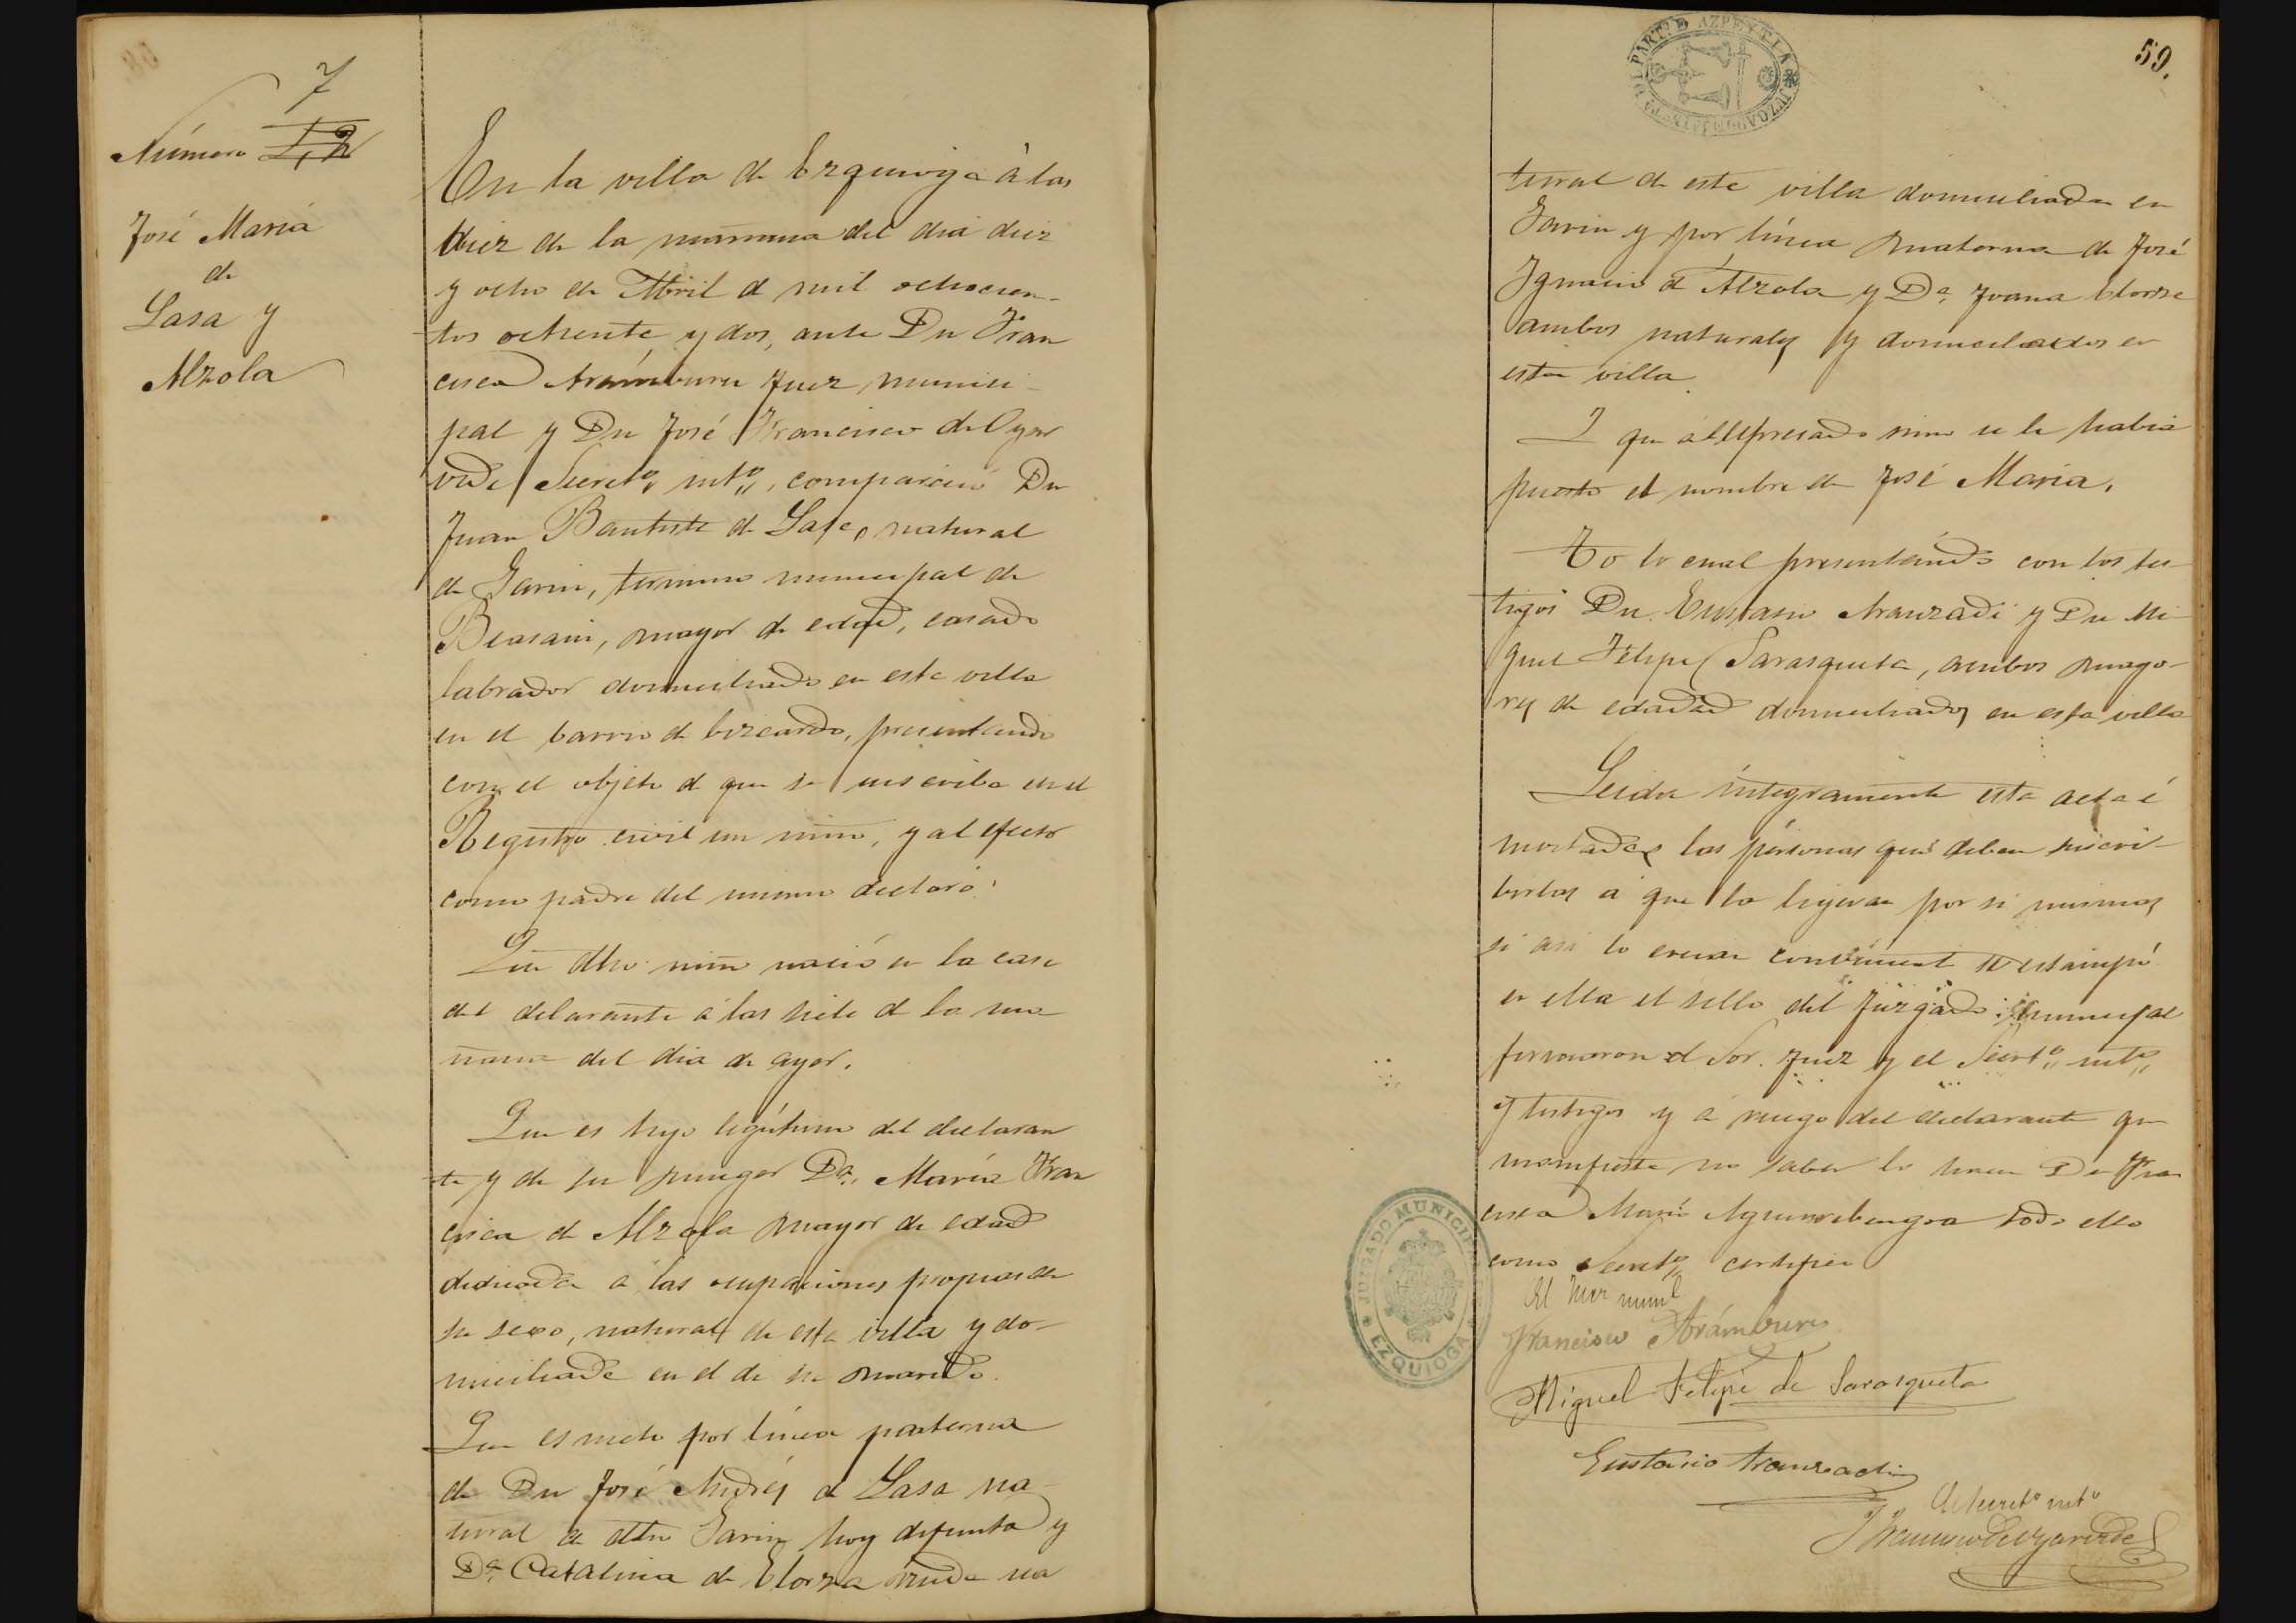 7
Número 12
José Maria
de
Lasa y
Alzola
En la villa de Ezquioga á las
diez de la mañana del dia diez
y ocho de Abril de mil ochocien-
tos ochenta y dos, ante Dn Fran
cisco Arámburu Juez munici-
pal y Dn José Francisco de Oyar
vide Secret.º int.º, compareció Dn
Juan Bautista de Lasa, natural
de Garin, termino municipal de
Beasain, mayor de edad, casado
labrador domiciliado en esta villa
en el barrio de, presentando
con el objeto de que se inscriba en el
Registro civil un niño, y al efecto
como padre del mismo declaró:
Que dho niño nació en la casa
del declarante á las siete de la ma
ñana del dia de ayer.
Que es hijo legítimo del declaran
te y de su muger Dª. María Fran
cisca de Alzola mayor de edad
dedicada a las ocupaciones propias de
su sexo, natural de esta villa y do-
miciliada en el de su marido.
Que es nieto por línea paterna
de Dn José Andrés de Lasa na-
tural de dho Garin hoy difunto y
Dª. Catalina de Elorza viuda na
59.
JUZGADO DE 1ª INSTANCIA DEL PARTº DE AZPEYTIA
tural de esta villa domiciliada en
Garin y por línea materna de José
Ignacio de Alzola y Dª. Juana Elorza
ambos naturales y domiciliados en
esta villa.
I que al espresado niño se le habia
puesto el nombre de José Maria.
To lo cual presenciando con los tes-
tigos Dn. Eustasio Aranzadi y Dn Mi-
guel Felipe Sarasqueta, ambos mayo-
res de edadad domiciliados en esta villa
Leida íntegramente esta acta é
invitadas las personas que deben suscri-
birlas á que la leyeran por si mismas
si asi lo creian conveniente se estampó
en ella el sello del Juzgado municipal
firmaron el Sor. Juez y el Secret.º int.º
y testigos y á ruego del declarante que
manifiesta no saber lo hace Dn Fran
cisco Maria todo ello
como Secret.º certifico
El Juez munl
Francisco Arámburu
JUZGADO MUNICIPAL
EZQUIOGA
Miguel Felipe de Sarasqueta
Eustasio Aranzadi
El Secretº intº
J. Francisco de Oyarvide